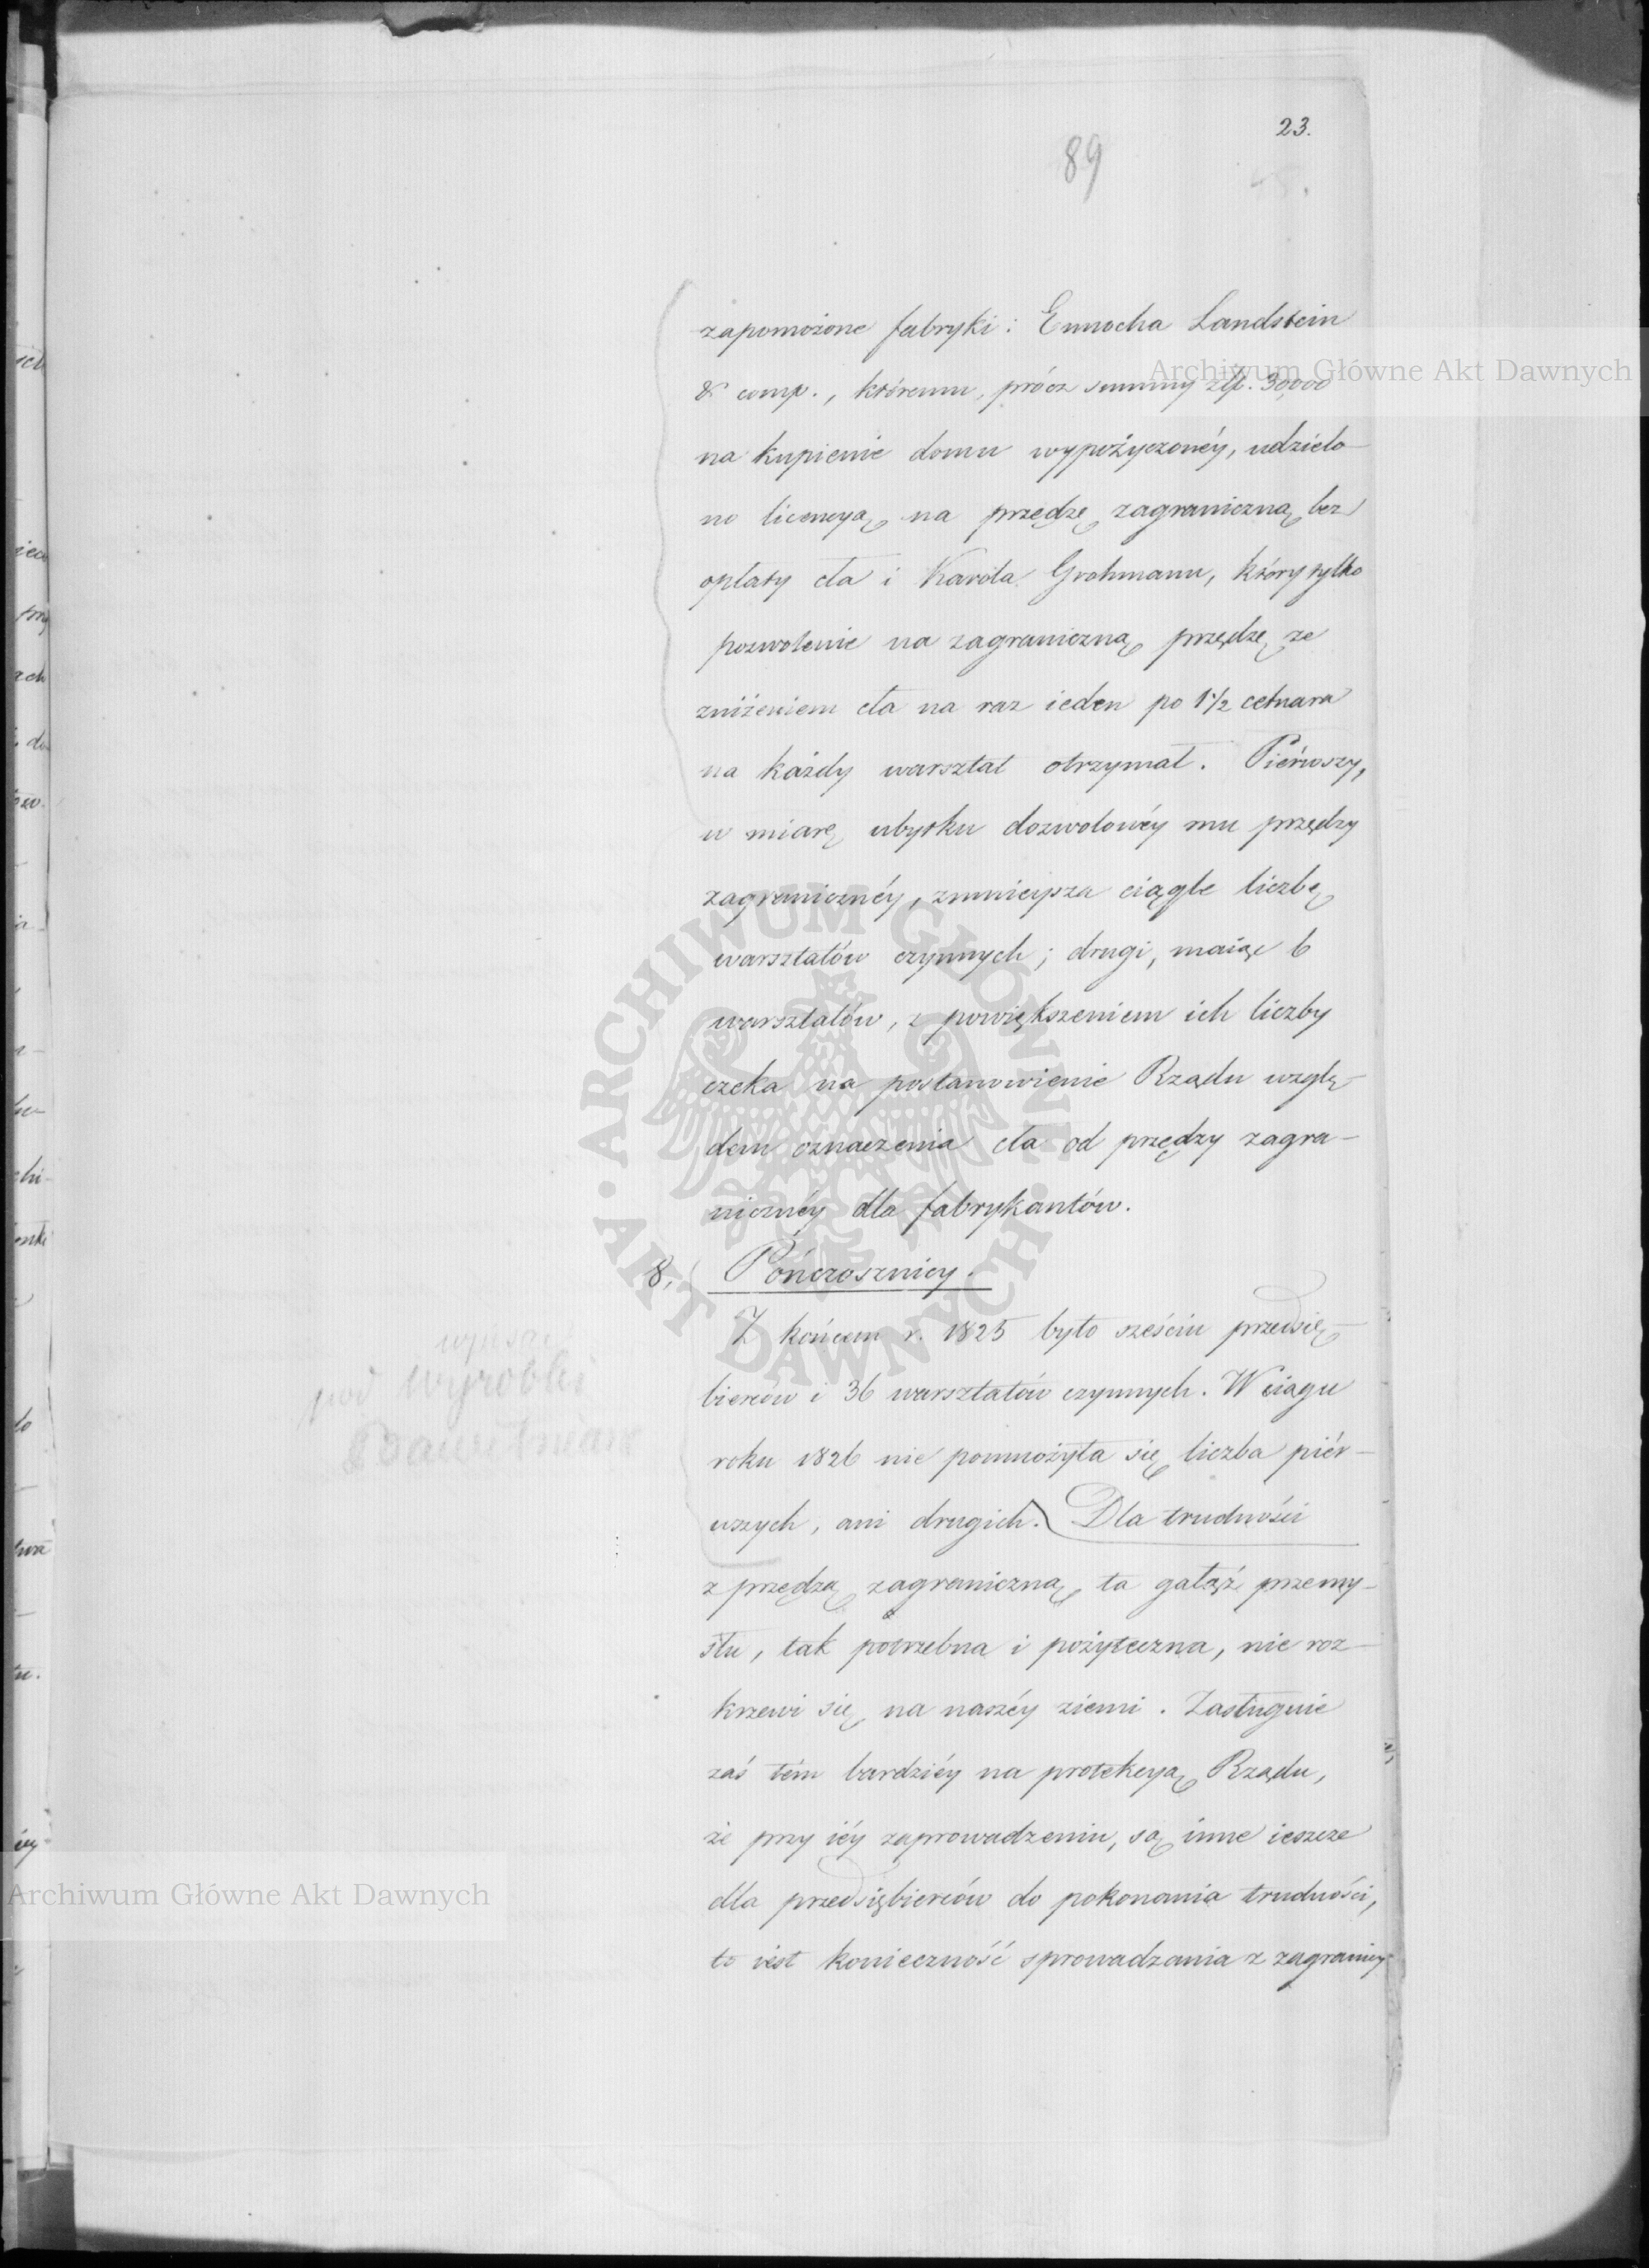 23.
89
zapomożone fabryki: Ennocha Landstein
& comp., któremu, prócz summy złp. 30,000
na kupienie domu wypożyczonéy, udzielo-
no licencyą na przędzę zagraniczną bez
opłaty cła i Karola Grohmann, który tylko
pozwolenie na zagraniczną przędzę ze
zniżeniem cła na raz ieden po 1 1/2 cetnara
na każdy warsztat otrzymał. Piérwszy,
w miarę ubytku dozwolonéy mu przędzy
zagranicznéy, zmnieysza ciągle liczbę
warsztatów czynnych; drugi, maiąc 6
warsztatów, z powiększeniem ich liczby
czeka na postanowienie Rządu wzglę-
dem oznaczenia cła od przędzy zagra-
nicznéy dla fabrykantów.
8. Pończosznicy.
Z końcem r. 1825 było sześciu przedsię-
bierców i 36 warsztatów czynnych. W ciągu
roku 1826 nie pomnożyła się liczba piér-
wszych, ani drugich. Dla trudności
z przędzą zagraniczną, ta gałąź przemy-
słu, tak potrzebna i pożyteczna, nie roz-
krzewi się na naszéy ziemi. Zasługuie
zaś tém bardziéy na protekcyą Rządu,
że przy iéy zaprowadzeniu, są inne ieszcze
dla przedsiębierców do pokonania trudności,
to iest konieczność sprowadzania z zagranicy
pod wyroby
Bawełniane
Archiwum Główne Akt Dawnych
Archiwum Główne Akt Dawnych
ARCHIWUM GŁÓWNE
· AKT DAWNYCH ·